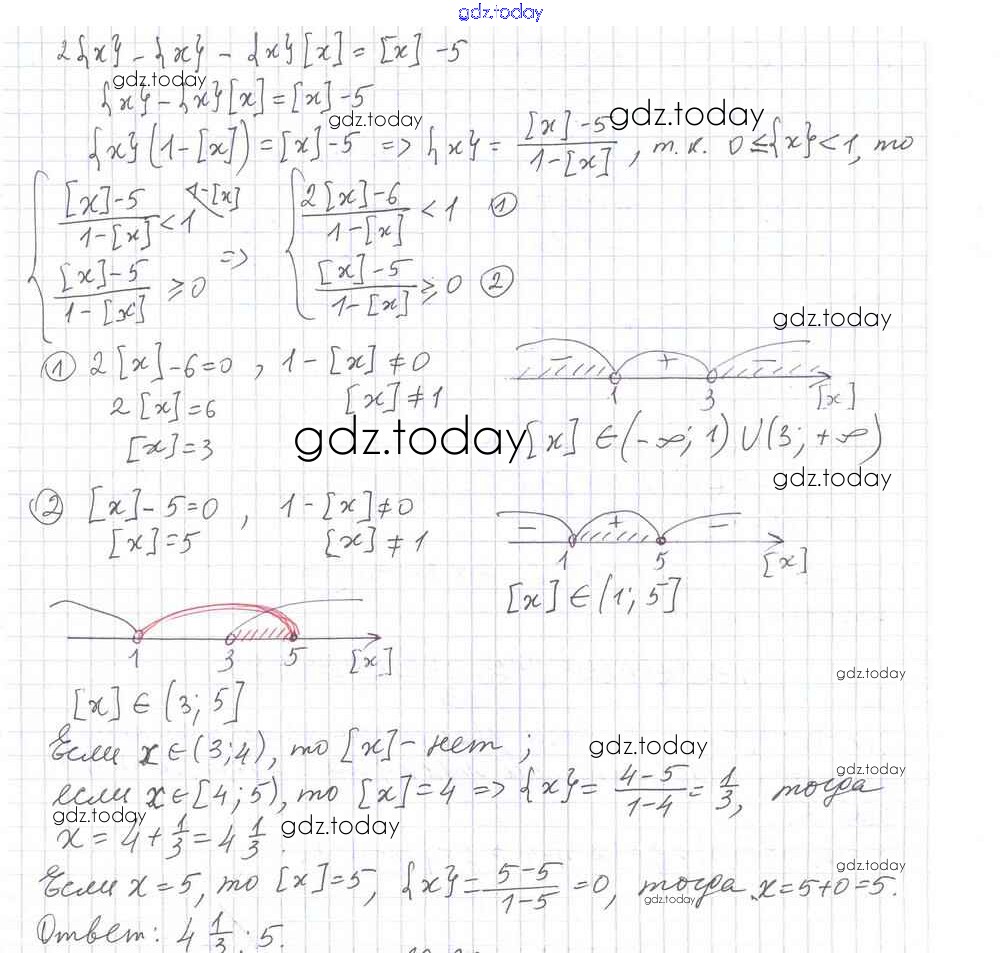 gdz.today
2{x} - {x} - {x}[x] = [x] - 5
gdz.today
{x} - {x}[x] = [x] - 5
gdz.today
gdz.today
{x}(1 - [x]) = [x] - 5 => {x} = ([x] - 5)/(1 - [x]), т.к. 0 ≤ {x} < 1, то
{ ([x] - 5)/(1 - [x]) < 1 1-[x] => { (2[x] - 6)/(1 - [x]) < 1 ①
([x] - 5)/(1 - [x]) ≥ 0 ([x] - 5)/(1 - [x]) ≥ 0 ②
gdz.today
① 2[x] - 6 = 0, 1 - [x] ≠ 0 - + -
2[x] = 6 [x] ≠ 1 1 3 [x]
[x] = 3 gdz.today [x] ∈ (-∞; 1) ∪ (3; +∞)
gdz.today
② [x] - 5 = 0, 1 - [x] ≠ 0 - + -
[x] = 5 [x] ≠ 1 1 5 [x]
[x] ∈ (1; 5]
1 3 5 [x]
gdz.today
[x] ∈ (3; 5]
Если x ∈ (3; 4), то [x] - нет;
gdz.today
gdz.today
если x ∈ [4; 5), то [x] = 4 => {x} = (4-5)/(1-4) = 1/3, тогда
gdz.today
x = 4 + 1/3 = 4 1/3.
gdz.today
gdz.today
Если x = 5, то [x] = 5, {x} = (5-5)/(1-5) = 0, тогда x = 5 + 0 = 5.
gdz.today
Ответ: 4 1/3; 5.